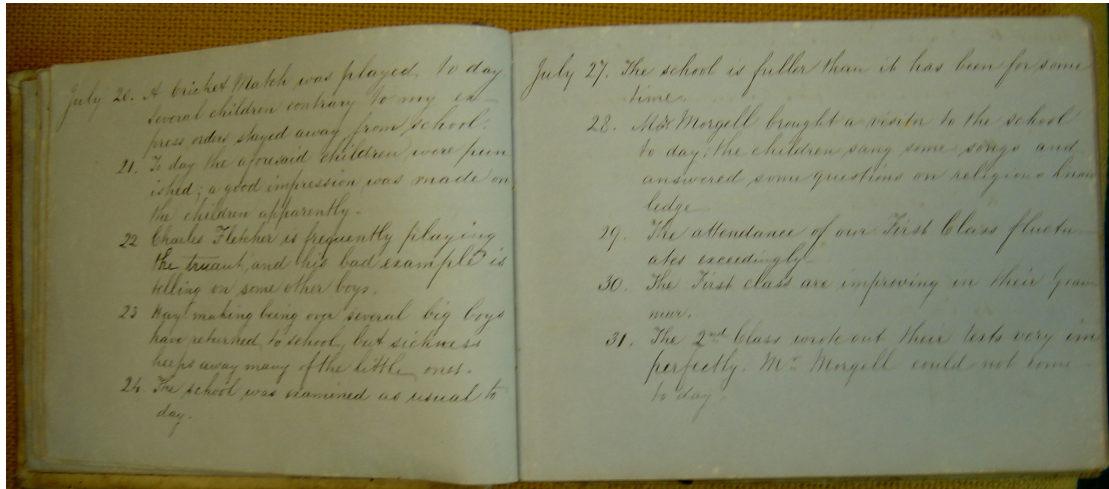 July 20. A Cricket Match was played, to day
several children contrary to my ex-
press orders stayed away from school.
21. To day the aforesaid children were pun
ished; a good impression was made on
the children apparently.
22 Charles Fletcher is frequently playing
the truant, and his bad example is
telling on some other boys.
23 Hay making being over several big boys
have returned to school, but sickness
keeps away many of the little ones.
24. The school was examined as usual to
day.
July 27. The school is fuller than it has been for some
time.
28. Mr Morgell brought a visitor to the school
to day; the children sang some songs and
answered some questions on religious know
ledge.
29. The attendance of our First Class fluctu-
ates exceedingly.
30. The First class are improving in their Gram
mar.
31. The 2nd Class wrote out their texts very im
perfectly. Mr Morgell could not come
to day.